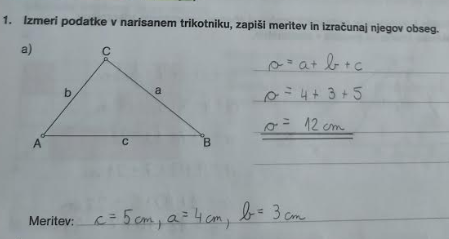 1. Izmeri podatke v narisanem trikotniku, zapiši meritev in izračunaj njegov obseg.
a)
C
o = a + b + c
b
a
o = 4 + 3 + 5
o = 12 cm
A
c
B
Meritev: c = 5 cm, a = 4 cm, b = 3 cm